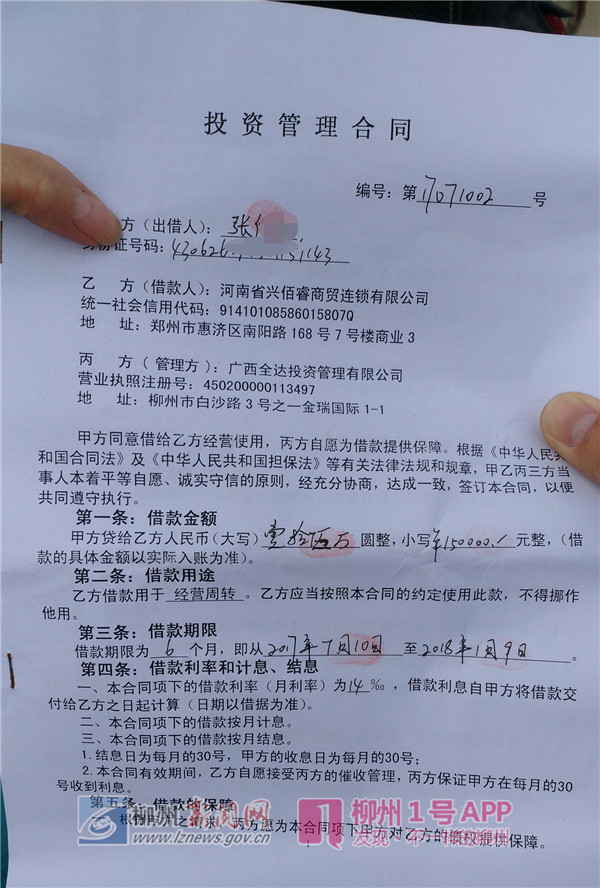 投资管理合同
编号：第 17071002 号
方（出借人）：张
身份证号码：430626 1143
乙 方（借款人）：河南省兴佰睿商贸连锁有限公司
统一社会信用代码：91410108586015807Q
地 址：郑州市惠济区南阳路 168 号 7 号楼商业 3
丙 方（管理方）：广西全达投资管理有限公司
营业执照注册号：450200000113497
地 址：柳州市白沙路 3 号之一金瑞国际 1-1
甲方同意借给乙方经营使用，丙方自愿为借款提供保障。根据《中华人民共
和国合同法》及《中华人民共和国担保法》等有关法律法规和规章，甲乙丙三方当
事人本着平等自愿、诚实守信的原则，经充分协商，达成一致，签订本合同，以便
共同遵守执行。
第一条：借款金额
甲方贷给乙方人民币（大写）壹拾伍万 圆整，小写 ¥150000.- 元整，（借
款的具体金额以实际入账为准）。
第二条：借款用途
乙方借款用于 经营周转 。乙方应当按照本合同的约定使用此款，不得挪作
他用。
第三条：借款期限
借款期限为 6 个月，即从 2017年7月10日 至 2018年1月9日 。
第四条：借款利率和计息、结息
一、本合同项下的借款利率（月利率）为 14 ‰，借款利息自甲方将借款交
付给乙方之日起计算（日期以借据为准）。
二、本合同项下的借款按月计息。
三、本合同项下的借款按月结息。
1.结息日为每月的30号，甲方的收息日为每月的30号；
2.本合同有效期间，乙方自愿接受丙方的催收管理，丙方保证甲方在每月的30
号收到利息。
第五条：借款的保障
一、根据 之请求，丙方愿为本合同项下甲方对乙方的债权提供保障。
柳州新闻网
www.lznews.gov.cn
柳州1号APP
发现·不一样的柳州